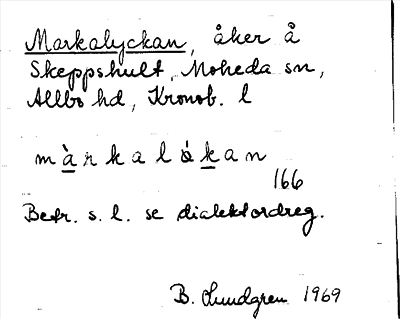 Markalyckan, åker å
Skeppshult, Moheda sn,
Allbo hd, Kronob. l
màrkalòkan
166
Betr. s. l. se dialektordreg.
B. Lundgren 1969